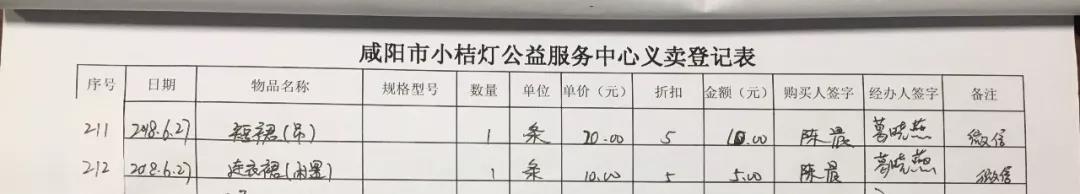 咸阳市小桔灯公益服务中心义卖登记表
序号 日期 物品名称 规格型号 数量 单位 单价（元） 折扣 金额（元） 购买人签字 经办人签字 备注
211 2018.6.27 短裙 1 条 20.00 5 10.00 陈晨 葛晓燕 微信
212 2018.6.27 连衣裙 1 条 10.00 5 5.00 陈晨 葛晓燕 微信